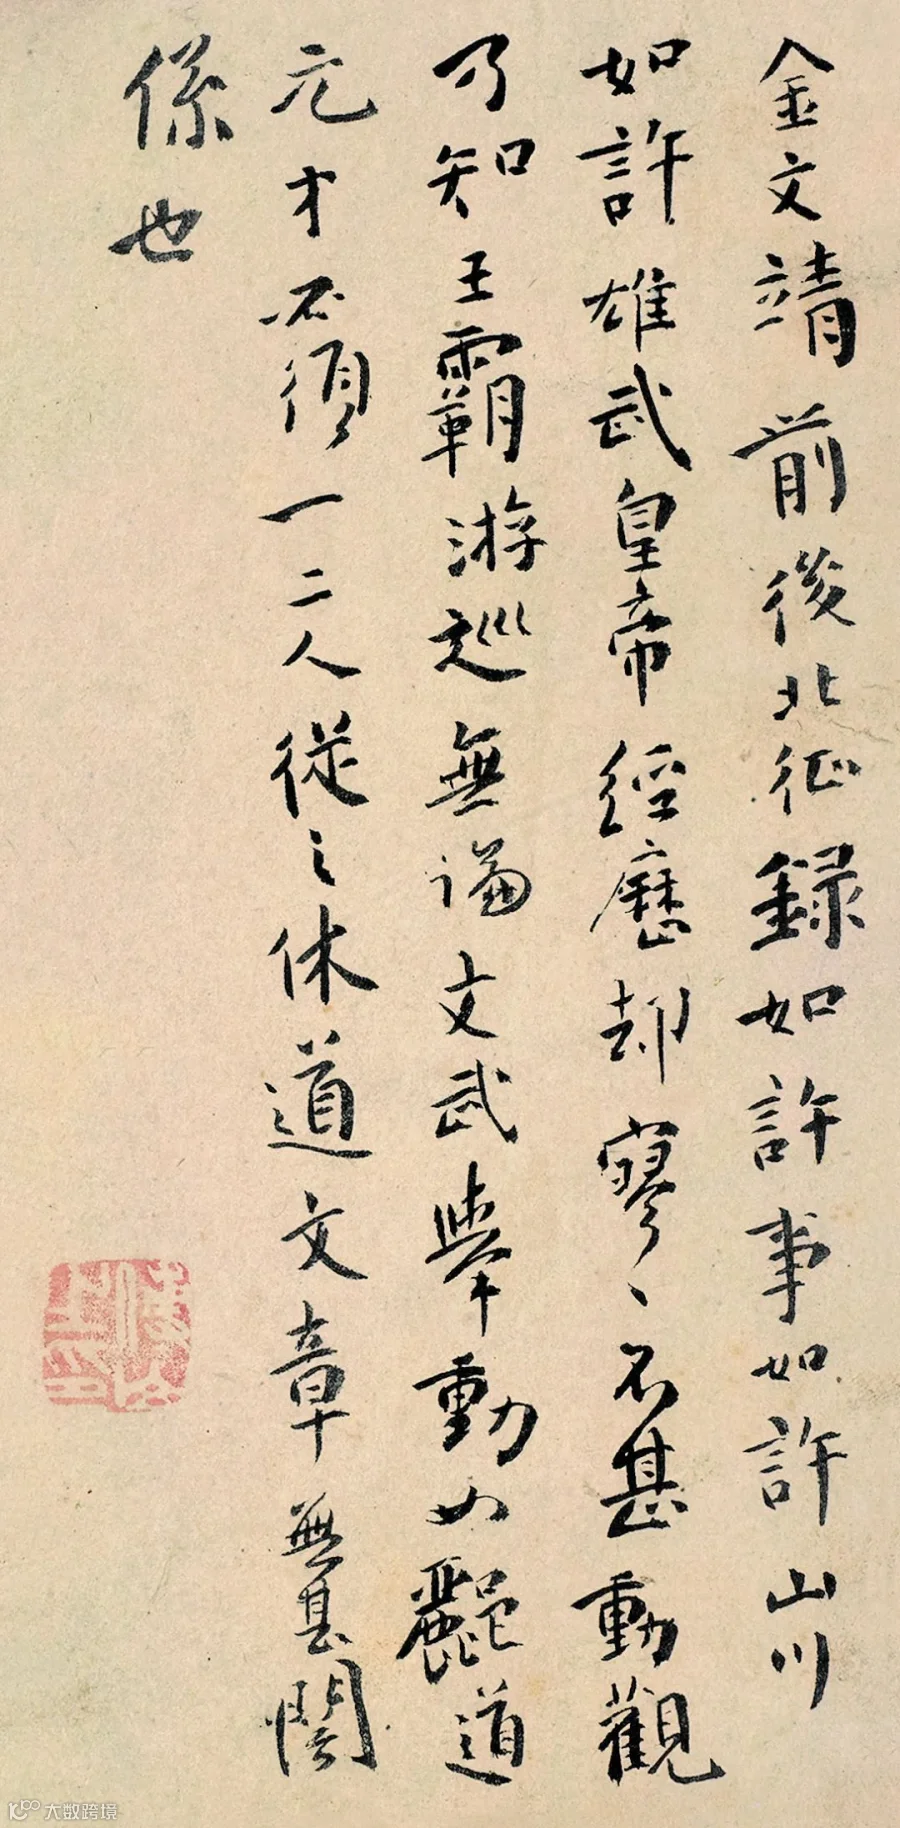 金文靖前後北征録如許事如許山川
如許雄武皇帝經歷却寥〻不甚動觀
乃知王霸游巡無論文武舉動如酈道
元才不須一二人從之休道文章無甚関
係也
大数跨境